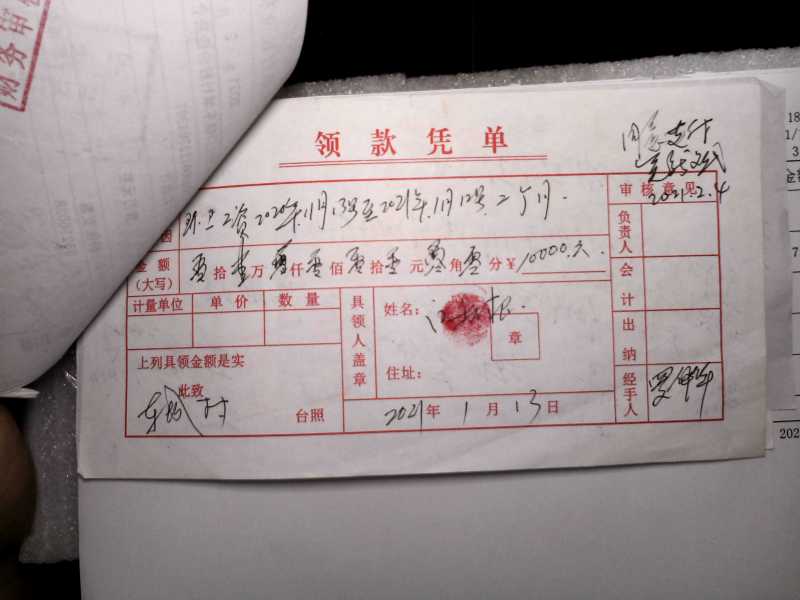 财务审
领款凭单
同意支付
2021.2.4
环卫工资2020年11月13号至2021年1月12号2个月.
审核意见
金额(大写) 零拾壹万零仟零佰零拾零元零角零分¥10000.元
负责人
计量单位 单价 数量
会计
具领人盖章
姓名:
章
住址:
出纳
上列具领金额是实
此致
村 台照
2021年1月13日
经手人